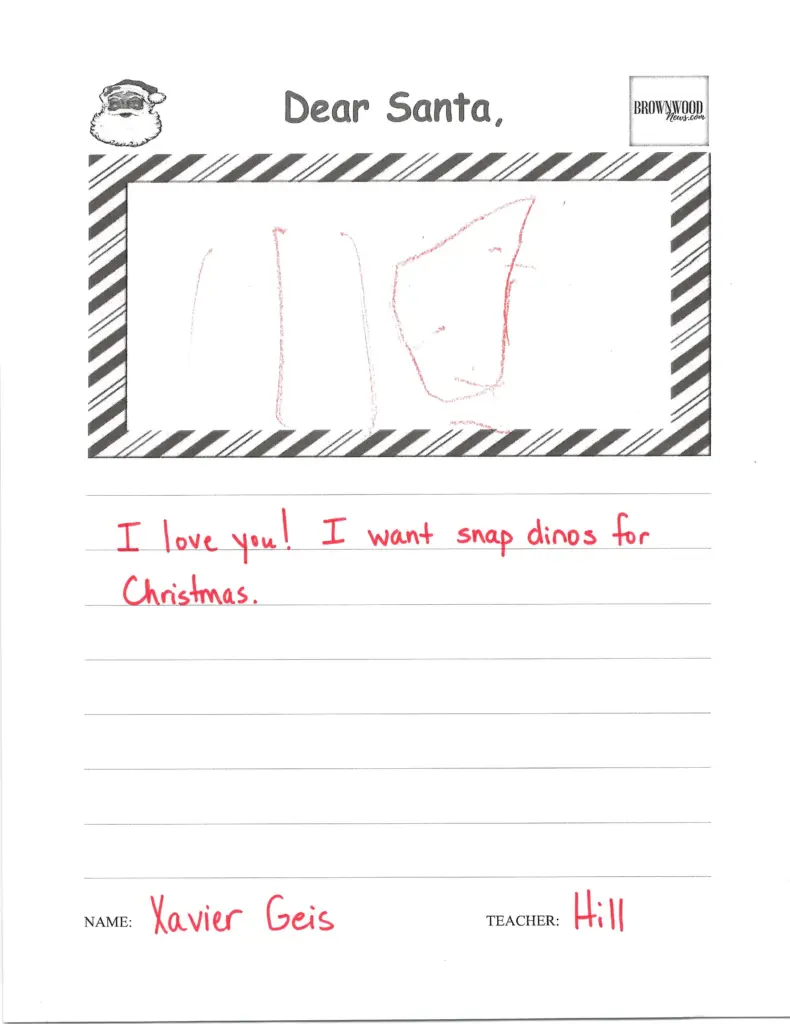 Dear Santa,
BROWNWOOD
News.com
I love you! I want snap dinos for
Christmas.
NAME: Xavier Geis TEACHER: Hill